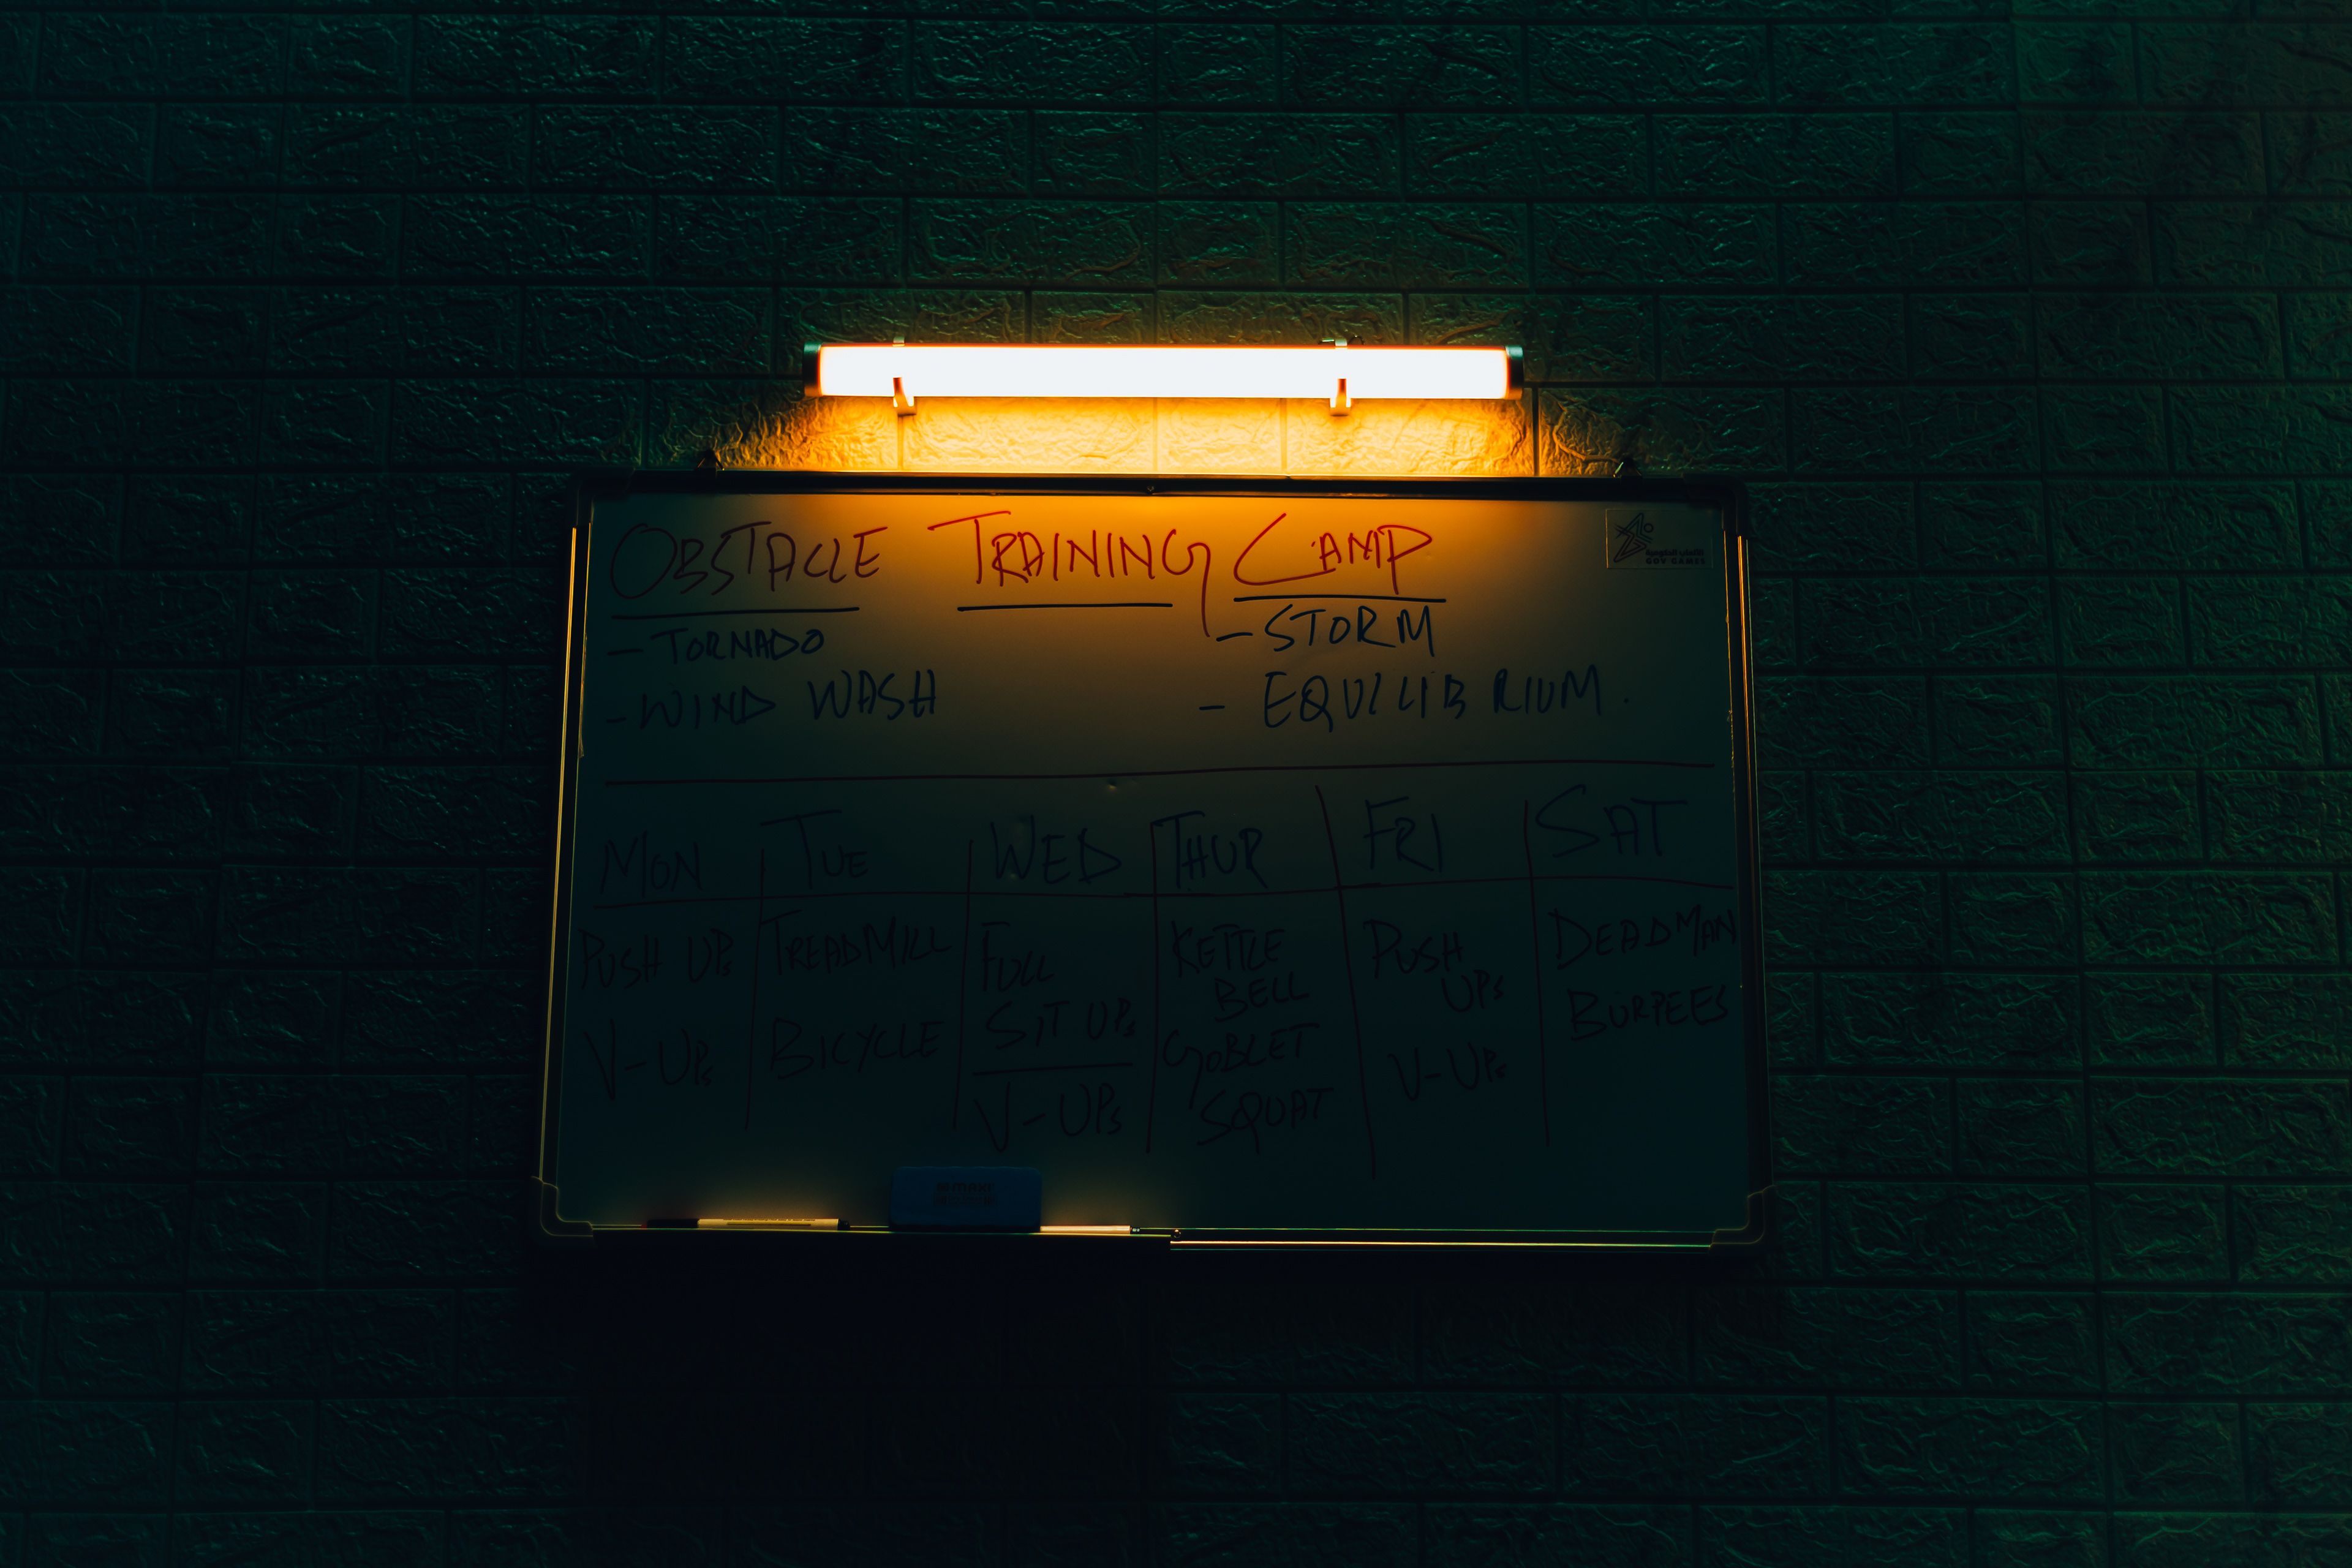 OBSTACLE TRAINING CAMP
- TORNADO
- WIND WASH
- STORM
- EQUILIBRIUM.
الألعاب الحكومية
GOV GAMES
MON TUE WED THUR FRI SAT
PUSH UPs
V-UPs
TREADMILL
BICYCLE
FULL
SIT UPs
V-UPs
KETTLE
BELL
GOBLET
SQUAT
PUSH
UPs
V-UPs
DEADMAN
BURPEES